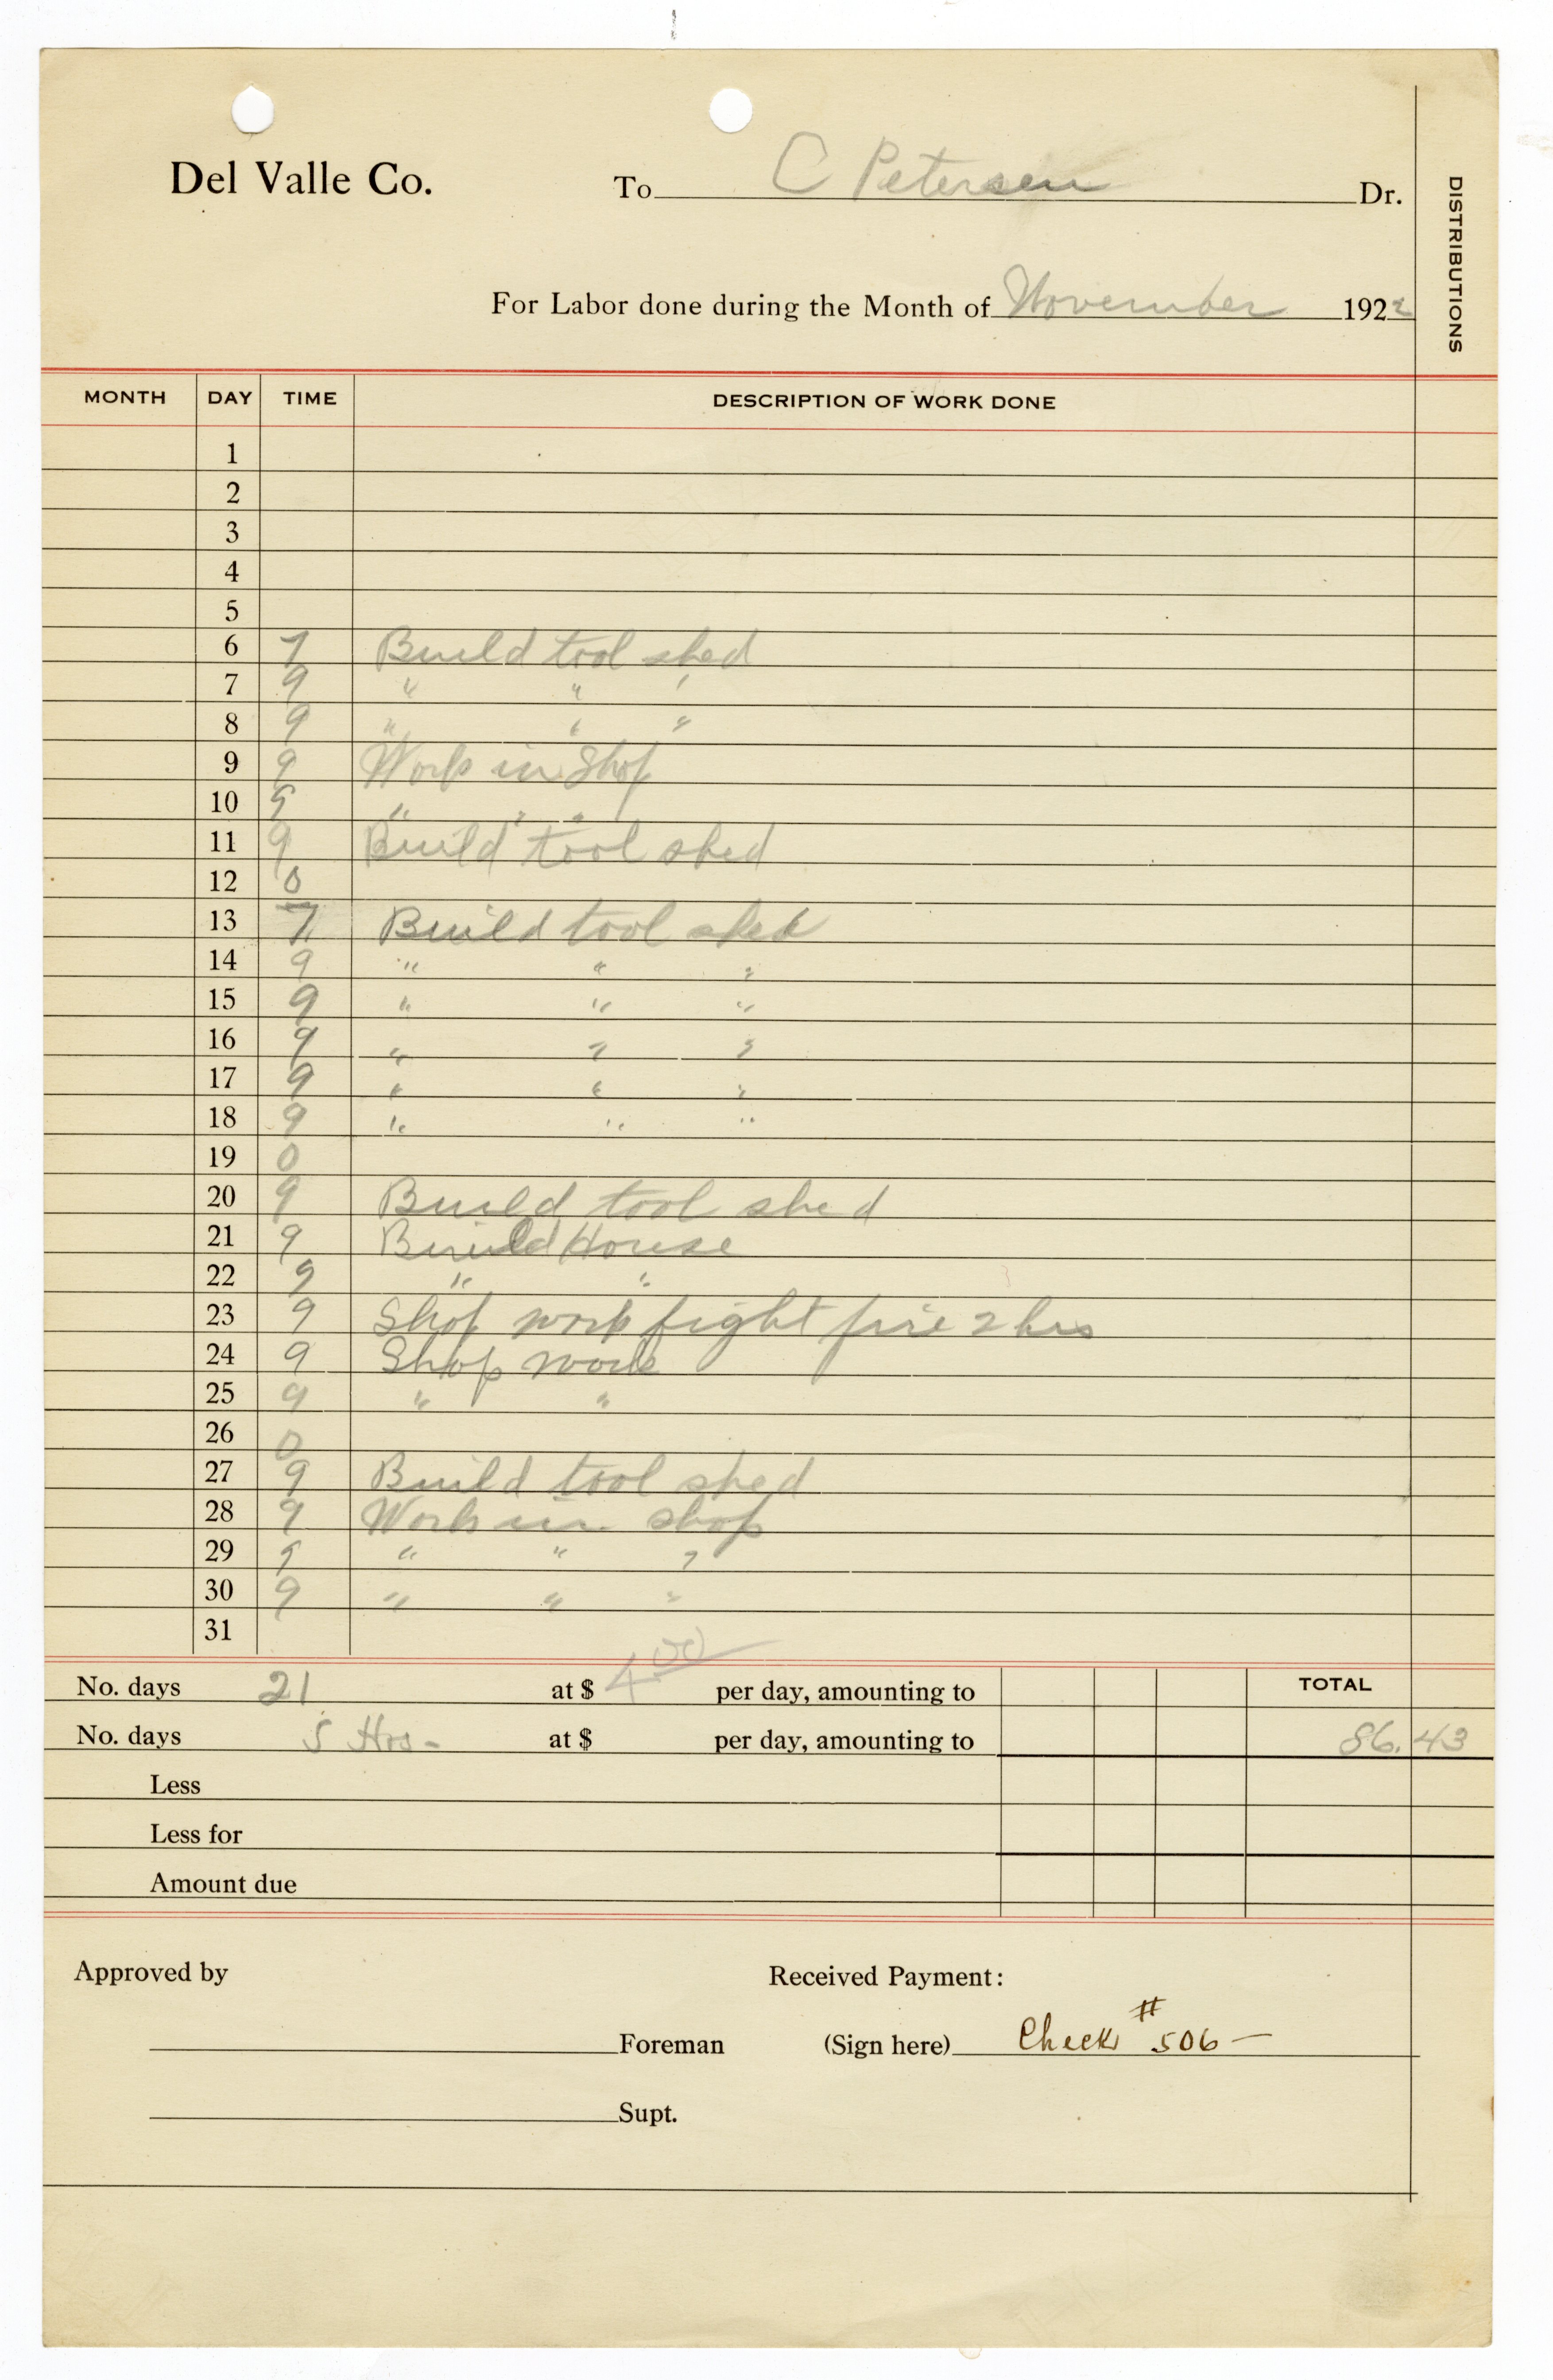 Del Valle Co. To C Petersen Dr.
DISTRIBUTIONS
For Labor done during the Month of November 1922
MONTH DAY TIME DESCRIPTION OF WORK DONE
1
2
3
4
5
6 7 Build tool shed
7 9 " " "
8 9 " " "
9 9 Work in Shop
10 9 " " "
11 9 Build tool shed
12 0
13 7 Build tool shed
14 9 " " "
15 9 " " "
16 9 " " "
17 9 " " "
18 9 " " "
19 0
20 9 Build tool shed
21 9 Build House
22 9 " "
23 9 Shop work fight fire 2 hrs
24 9 Shop work
25 9 " "
26 0
27 9 Build tool shed
28 9 Work in shop
29 9 " " "
30 9 " " "
31
No. days 21 at $ 4 00 per day, amounting to TOTAL
No. days 5 Hrs - at $ per day, amounting to 86.43
Less
Less for
Amount due
Approved by Received Payment:
Foreman (Sign here) Check # 506 —
Supt.